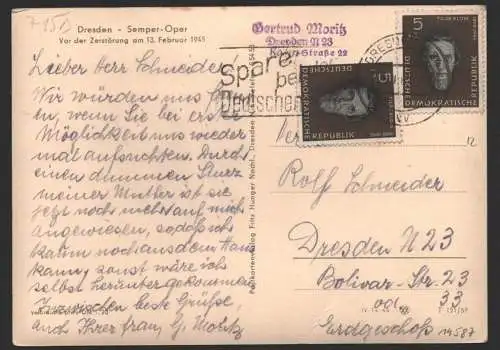 7151
Dresden - Semper-Oper
Vor der Zerstörung am 13. Februar 1945
Lieber Herr Schneider
Wir würden uns
en, wenn Sie bei erster
Möglichkeit uns wieder
mal aufsuchten. Durch
einen dummen Sturz
meiner Mutter ist sie
jetzt noch mehr auf mich
angewiesen, sodaß ich
kaum noch aus dem Haus
kann, sonst wäre ich
selbst heruntergekommen
Inzwischen beste Grüße,
auch Ihrer Frau, G. Moritz
Gertrud Moritz
Dresden N 23
Straße 22
Spare
be
Deutschen
5
DEUTSCHE
DEMOKRATISCHE
REPUBLIK
5
DEUTSCHE
DEMOKRATISCHE
REPUBLIK
Postkartenverlag Fritz Hunger Nachf., Dresden N
12
Rolf Schneider
Dresden N 23
Bolivar-Str. 23
od. 33
Erdgeschoß
14587